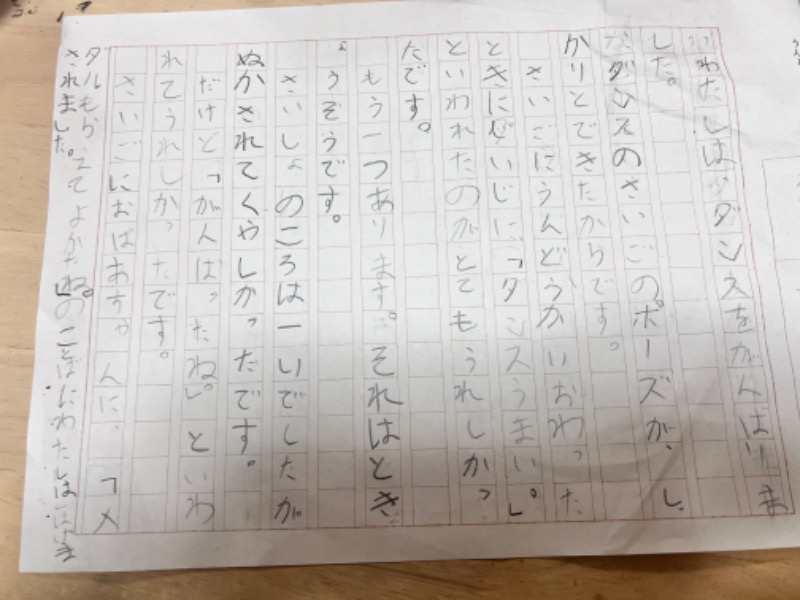 わたしはダンスをがんはりま
した。
ダンスのさいごのポーズが、し
かりとできたからです。
さいごにうんどうかいおわった
ときにどいじに「タンスうまい」。
といわれたのがとてもうれしかっ
たです。
もう一つあります。それはとき
ょうそうです。
さいしょのころは一いでしたが
ぬかされてくやしかったです。
だけど「がんばったね。」といわ
れてうれしかったです。
さいごにおばあちゃんに、「メ
ダルもらえてよかたね。」のことばにわたしは
されました。